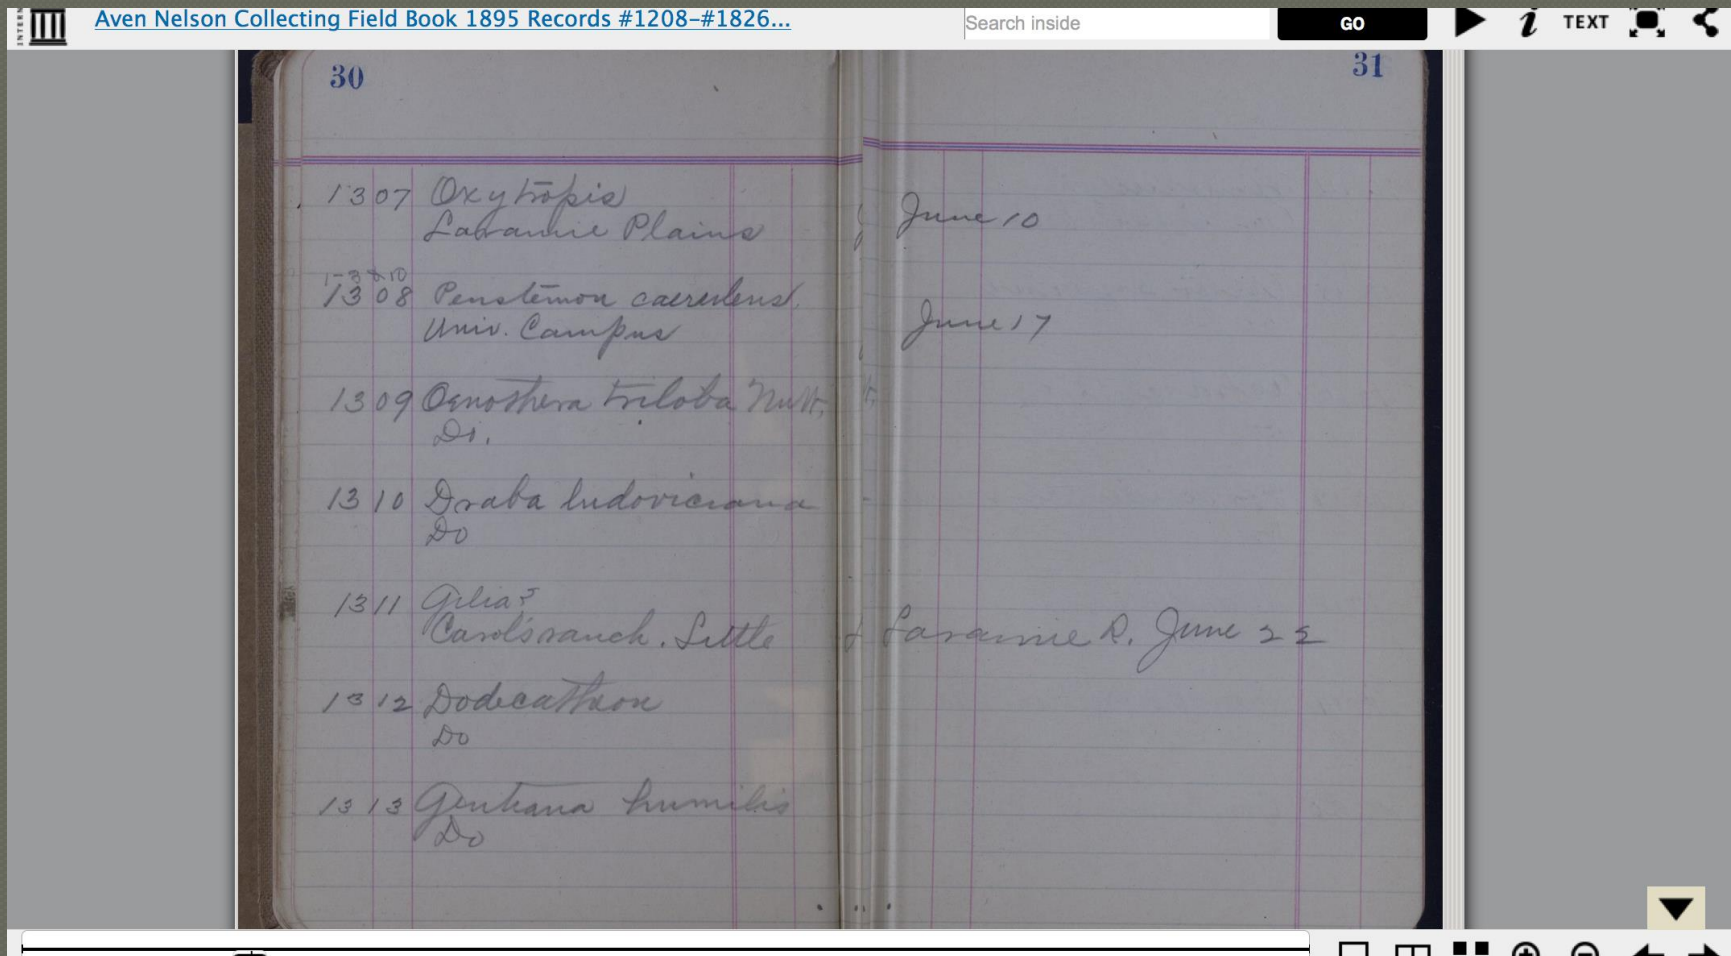 Aven Nelson Collecting Field Book 1895 Records #1208–#1826...
Search inside
GO
TEXT
30
31
1307 Oxytropis
Laramie Plains June 10
1308 Penstemon caeruleus
Univ. Campus June 17
1309 Oenothera triloba Nutt.
Do.
1310 Draba ludoviciana
Do
1311 Gilia?
Carol's ranch. Little Laramie R. June 22
1312 Dodecatheon
Do
1313 Gentiana humilis
Do